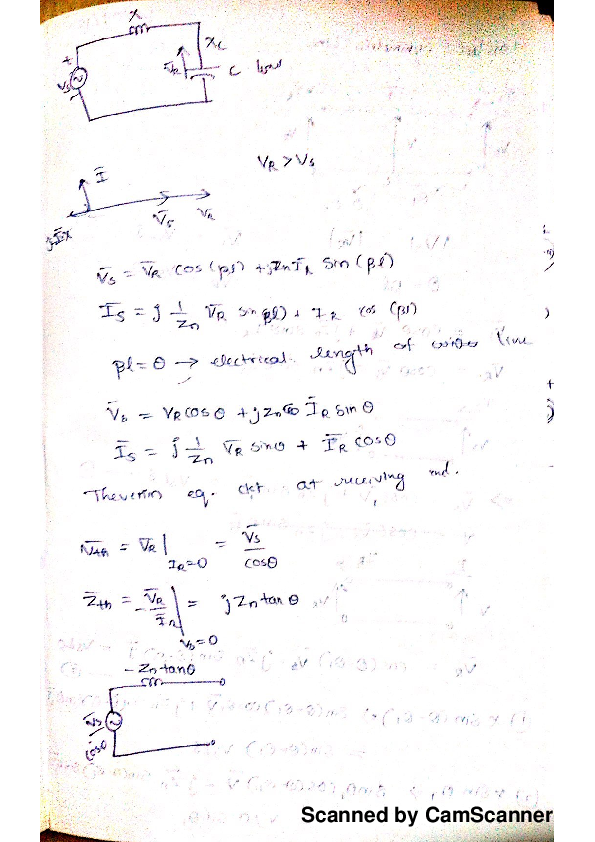 X
X_C
+
V̄_R
C load
V_S
V_R > V_S
Ī
V̄_S V̄_R
V̄_S = V̄_R cos (βl) + jZ_n Ī_R sin (βl)
Ī_S = j 1/Z_n V̄_R sin βl) + I_R cos (βl)
βl = θ → electrical length of line
V̄_S = V_R cosθ + jZ_n Ī_R sin θ
Ī_S = j 1/Z_n V̄_R sinθ + Ī_R cosθ
Thevenin eq. ckt at receiving end.
V̄_th = V̄_R | I_R=0 = V̄_S / cosθ
Z̄_th = V̄_R / -Ī_R | V_S=0 = j Z_n tan θ
Z_n tanθ
V̄_S / cosθ
Scanned by CamScanner